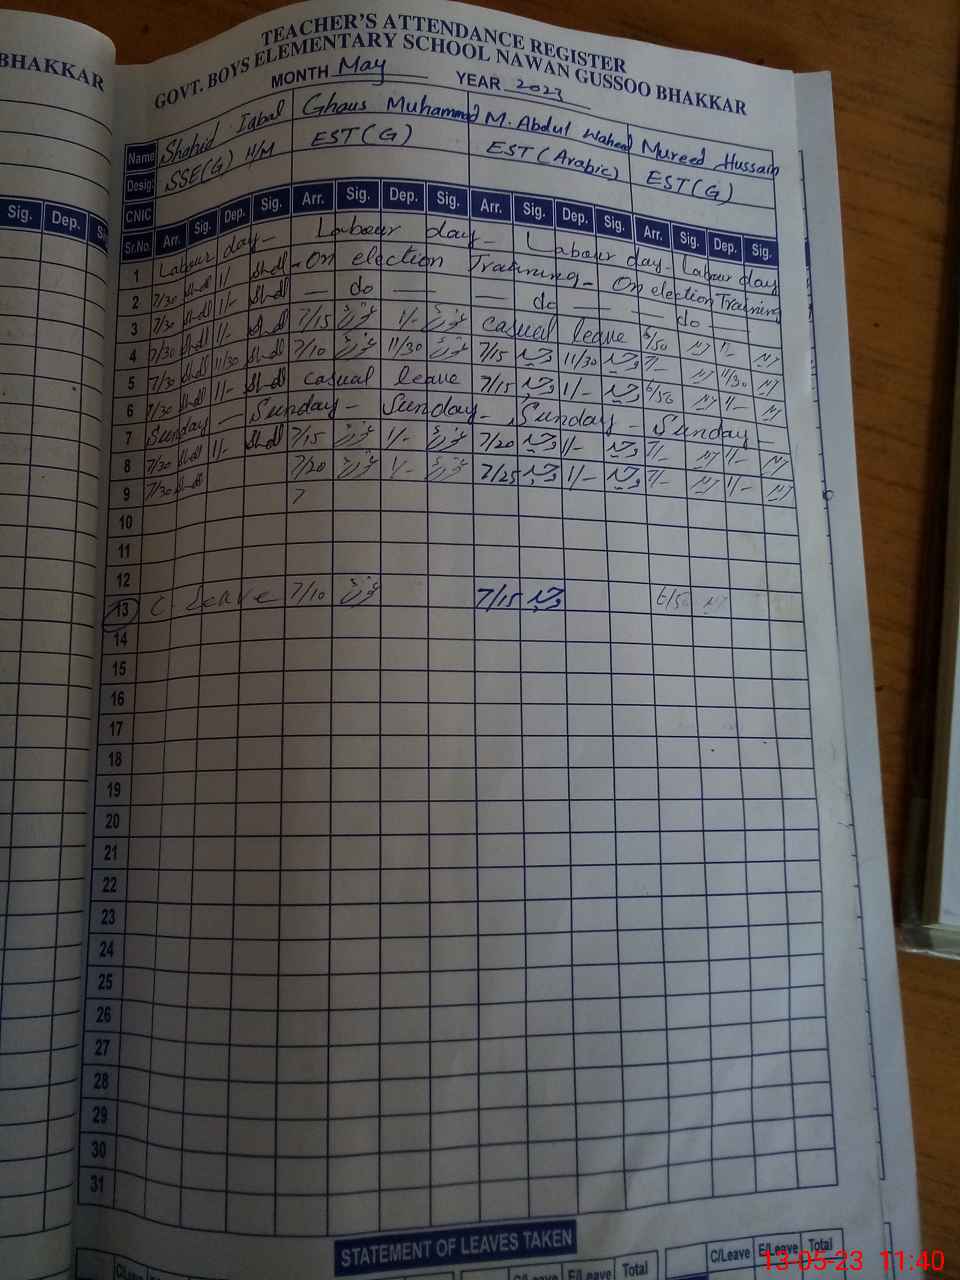 BHAKKAR
Sig. Dep.
TEACHER'S ATTENDANCE REGISTER
GOVT. BOYS ELEMENTARY SCHOOL NAWAN GUSSOO BHAKKAR
MONTH May YEAR 2023
Name Shahid Iqbal Ghaus Muhammad M. Abdul Waheed Mureed Hussain
Desig: SSE(G) H/M EST(G) EST(Arabic) EST(G)
CNIC
Sr.No. Arr. Sig. Dep. Sig. Arr. Sig. Dep. Sig. Arr. Sig. Dep. Sig. Arr. Sig. Dep. Sig.
1 Labour day- Labour day- Labour day- Labour day
2 7/30 1/- On election Training- On election Training
3 7/30 1/- do do do
4 7/30 1/- 7/15 1/- casual leave 6/50 1/-
5 7/30 11/30 7/10 11/30 7/15 11/30 7/- 11/30
6 7/30 1/- casual leave 7/15 1/- 6/50 1/-
7 Sunday - Sunday - Sunday - Sunday - Sunday -
8 7/30 1/- 7/15 1/- 7/20 1/- 7/- 1/-
9 7/30 7/20 1/- 7/25 1/- 7/- 1/-
10 7
11
12
13 C. Leave 7/10 7/15 6/50
14
15
16
17
18
19
20
21
22
23
24
25
26
27
28
29
30
31
STATEMENT OF LEAVES TAKEN
C/Leave E/Leave Total C/Leave E/Leave Total
13-05-23 11:40